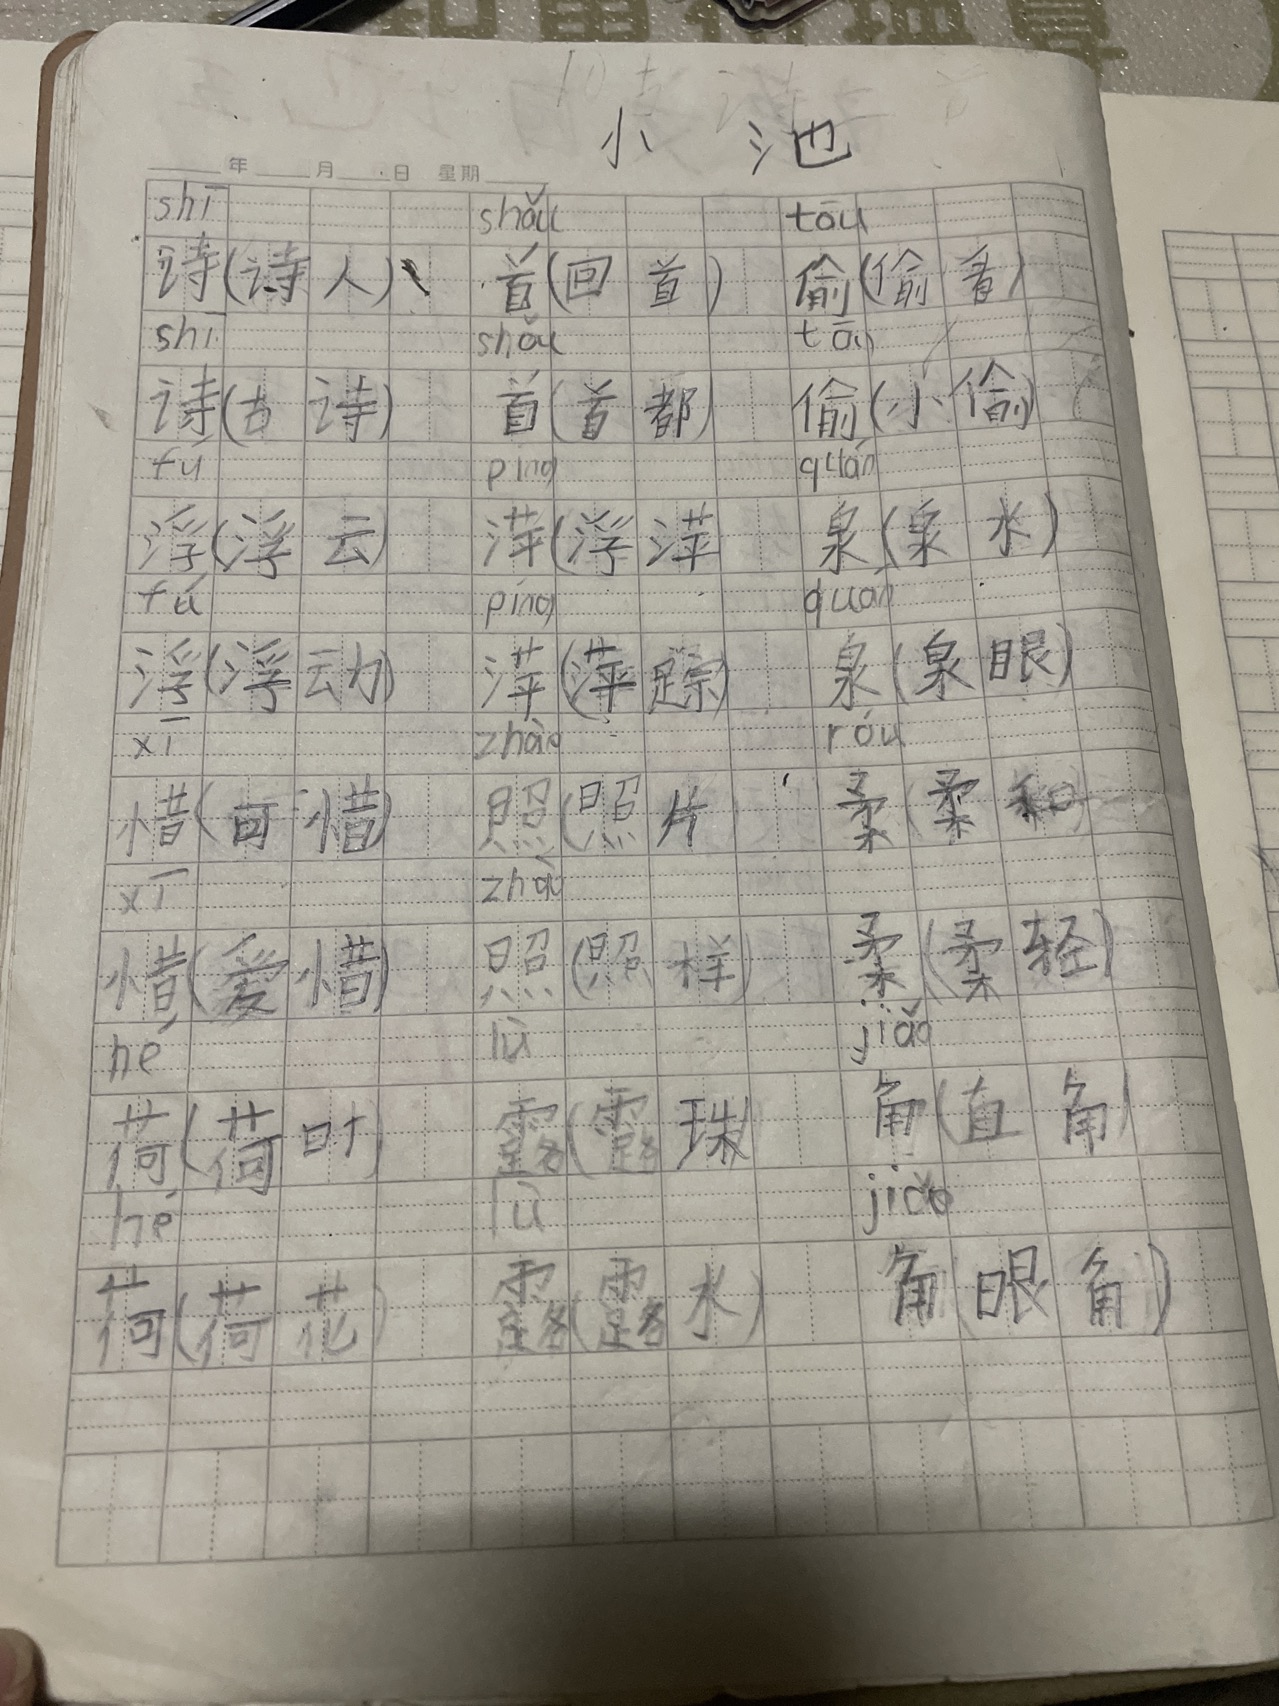 小 池
年 月 日 星期
shī shǒu tōu
诗(诗人)、 首(回首) 偷(偷看)
shī shǒu tōu
诗(古诗) 首(首都) 偷(小偷)
fú píng quán
浮(浮云) 萍(浮萍) 泉(泉水)
fú píng quán
浮(浮动) 萍(萍踪) 泉(泉眼)
xī zhào róu
惜(可惜) 照(照片) 柔(柔和)
xī zhào
惜(爱惜) 照(照样) 柔(柔轻)
hé lù jiǎo
荷(荷叶) 露(露珠) 角(直角)
hé lù jiǎo
荷(荷花) 露(露水) 角(眼角)